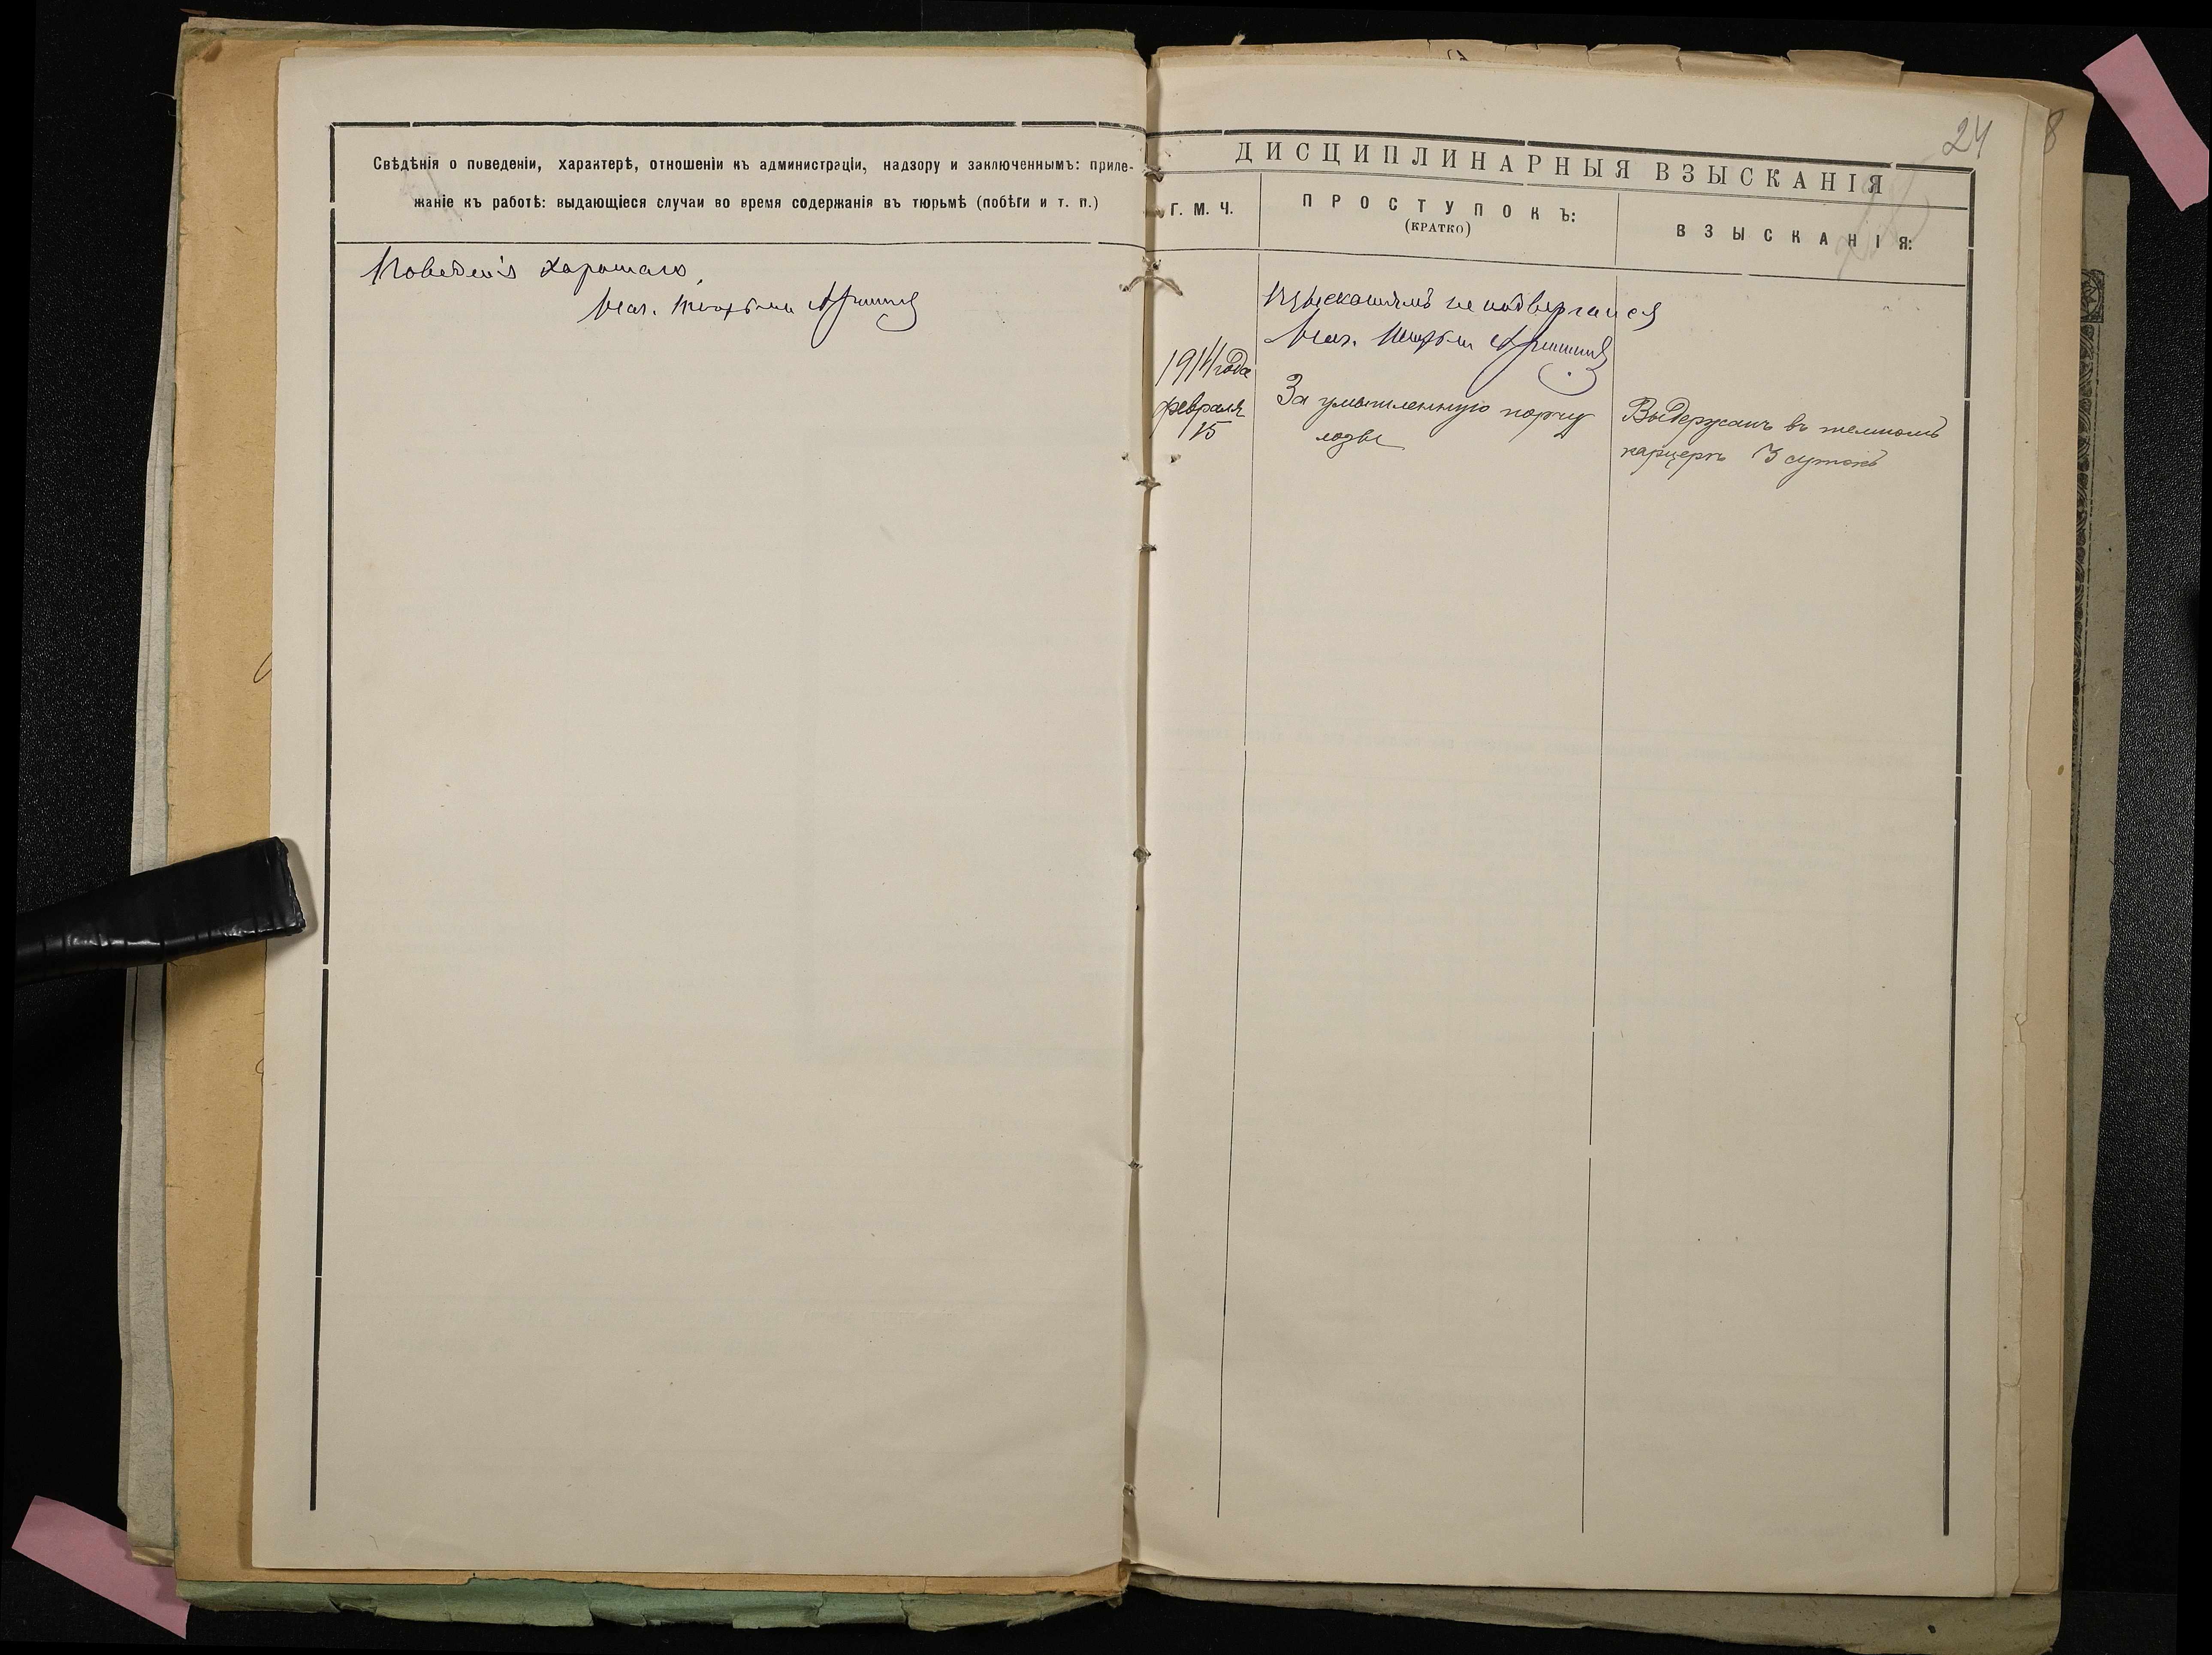 Свѣдѣнія о поведеніи, характерѣ, отношеніи къ администраціи, надзору и заключеннымъ: приле-
жаніе къ работѣ: выдающіеся случаи во время содержанія въ тюрьмѣ (побѣги и т. п.)
Поведенія хорошаго
Нач. тюрьмы
24
8
ДИСЦИПЛИНАРНЫЯ ВЗЫСКАНІЯ
Г. М. Ч.
ПРОСТУПОКЪ:
(КРАТКО)
ВЗЫСКАНІЯ:
Взысканіямъ не подвергался
Нач. тюрьмы
1914 года
февраля
15
За умышленную порчу
лозы
Выдержанъ въ темномъ
карцерѣ 3 сутокъ